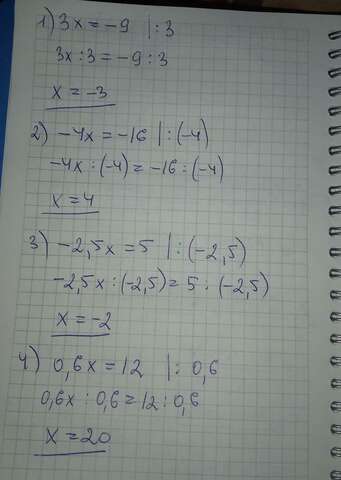 1) 3x = -9 | : 3
3x : 3 = -9 : 3
x = -3
2) -4x = -16 | : (-4)
-4x : (-4) = -16 : (-4)
x = 4
3) -2,5x = 5 | : (-2,5)
-2,5x : (-2,5) = 5 : (-2,5)
x = -2
4) 0,6x = 12 | : 0,6
0,6x : 0,6 = 12 : 0,6
x = 20